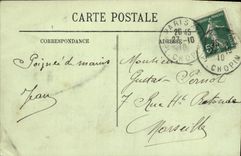 CARTE POSTALE
CORRESPONDANCE
ADRESSE
Poignée de mains
Jean
Monsieur
Gustave Pernod
7 Rue Hte Rotonde
Marseille
PARIS
22 15
10
CHOPIN